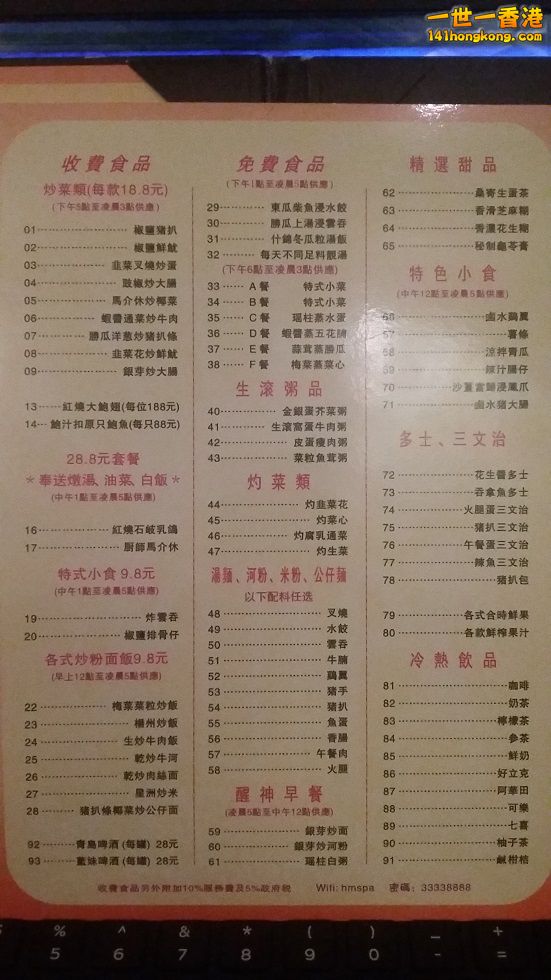 一世一香港
141hongkong.com
收費食品
炒菜類(每款18.8元)
(下午5點至凌晨3點供應)
01 椒鹽豬扒
02 椒鹽鮮魷
03 韭菜叉燒炒蛋
04 豉椒炒大腸
05 馬介休炒椰菜
06 蝦醬通菜炒牛肉
07 勝瓜洋蔥炒豬扒條
08 韭菜花炒鮮魷
09 銀芽炒大腸
13 紅燒大鮑翅(每位188元)
14 鮑汁扣原只鮑魚(每只88元)
28.8元套餐
*奉送燉湯、油菜、白飯*
(中午1點至凌晨5點供應)
16 紅燒石岐乳鴿
17 廚師馬介休
特式小食 9.8元
(中午1點至凌晨5點供應)
19 炸雲吞
20 椒鹽排骨仔
各式炒粉面飯9.8元
(早上12點至凌晨5點供應)
22 梅菜菜粒炒飯
23 楊州炒飯
24 生炒牛肉飯
25 乾炒牛河
26 乾炒肉絲面
27 星洲炒米
28 豬扒條椰菜炒公仔面
92 青島啤酒 (每罐) 28元
93 藍妹啤酒 (每罐) 28元
免費食品
(下午1點至凌晨5點供應)
29 東瓜柴魚浸水餃
30 勝瓜上湯浸雲吞
31 什錦冬瓜粒湯飯
32 每天不同足料靚湯
(下午6點至凌晨3點供應)
33 A餐 特式小菜
34 B餐 特式小菜
35 C餐 瑶柱蒸水蛋
36 D餐 蝦醬蒸五花腩
37 E餐 蒜茸蒸勝瓜
38 F餐 梅菜蒸菜心
生滾粥品
40 金銀蛋芥菜粥
41 生滾窩蛋牛肉粥
42 皮蛋瘦肉粥
43 菜粒魚茸粥
灼菜類
44 灼韭菜花
45 灼菜心
46 灼腐乳通菜
47 灼生菜
湯麵、河粉、米粉、公仔麵
以下配料任选
48 叉燒
49 水餃
50 雲吞
51 牛腩
52 鷄翼
53 豬手
54 豬扒
55 魚蛋
56 香腸
57 午餐肉
58 火腿
醒神早餐
(凌晨5點至中午12點供應)
59 銀芽炒面
60 銀芽炒河粉
61 瑶柱白粥
精選甜品
62 桑寄生蛋茶
63 香滑芝麻糊
64 香濃花生糊
65 秘制龜苓膏
特色小食
(中午12點至凌晨5點供應)
66 鹵水鷄翼
67 薯條
68 涼拌青瓜
69 辣汁腸仔
70 沙薑當歸浸鳳爪
71 鹵水豬大腸
多士、三文治
72 花生醬多士
73 吞拿魚多士
74 火腿蛋三文治
75 豬扒三文治
76 午餐蛋三文治
77 辣魚三文治
78 豬扒包
79 各式合時鮮果
80 各款鮮榨果汁
冷熱飲品
81 咖啡
82 奶茶
83 檸檬茶
84 参茶
85 鮮奶
86 好立克
87 阿華田
88 可樂
89 七喜
90 柚子茶
91 鹹柑桔
收費食品另外附加10%服務費及5%政府稅 Wifi: hmspa 密碼: 33338888
% ^ & * ( ) _ +
5 6 7 8 9 0 - =